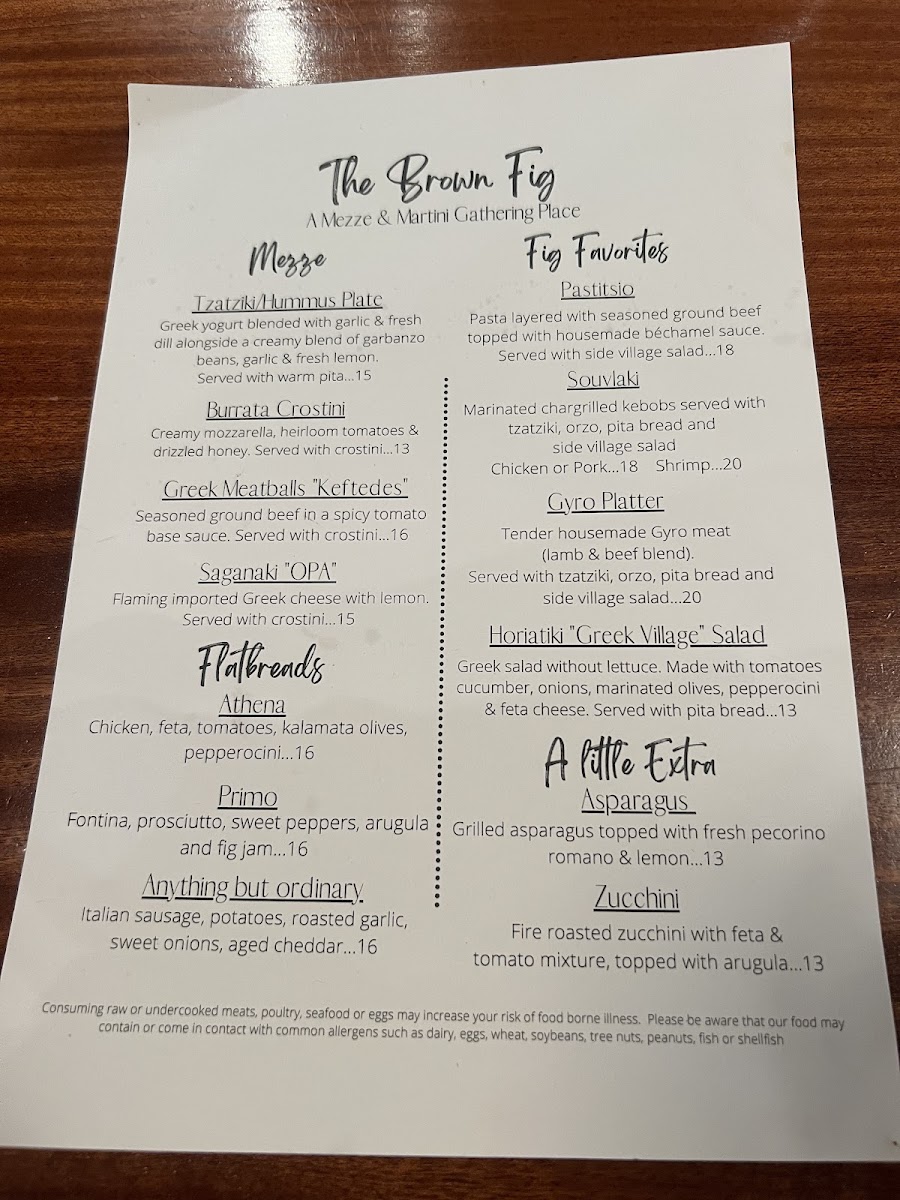 The Brown Fig
A Mezze & Martini Gathering Place
Mezze
Tzatziki/Hummus Plate
Greek yogurt blended with garlic & fresh
dill alongside a creamy blend of garbanzo
beans, garlic & fresh lemon.
Served with warm pita...15
Burrata Crostini
Creamy mozzarella, heirloom tomatoes &
drizzled honey. Served with crostini...13
Greek Meatballs "Keftedes"
Seasoned ground beef in a spicy tomato
base sauce. Served with crostini...16
Saganaki "OPA"
Flaming imported Greek cheese with lemon.
Served with crostini...15
Flatbreads
Athena
Chicken, feta, tomatoes, kalamata olives,
pepperocini...16
Primo
Fontina, prosciutto, sweet peppers, arugula
and fig jam...16
Anything but ordinary
Italian sausage, potatoes, roasted garlic,
sweet onions, aged cheddar...16
Fig Favorites
Pastitsio
Pasta layered with seasoned ground beef
topped with housemade béchamel sauce.
Served with side village salad...18
Souvlaki
Marinated chargrilled kebobs served with
tzatziki, orzo, pita bread and
side village salad
Chicken or Pork...18 Shrimp...20
Gyro Platter
Tender housemade Gyro meat
(lamb & beef blend).
Served with tzatziki, orzo, pita bread and
side village salad...20
Horiatiki "Greek Village" Salad
Greek salad without lettuce. Made with tomatoes
cucumber, onions, marinated olives, pepperocini
& feta cheese. Served with pita bread...13
A little Extra
Asparagus
Grilled asparagus topped with fresh pecorino
romano & lemon...13
Zucchini
Fire roasted zucchini with feta &
tomato mixture, topped with arugula...13
Consuming raw or undercooked meats, poultry, seafood or eggs may increase your risk of food borne illness. Please be aware that our food may
contain or come in contact with common allergens such as dairy, eggs, wheat, soybeans, tree nuts, peanuts, fish or shellfish